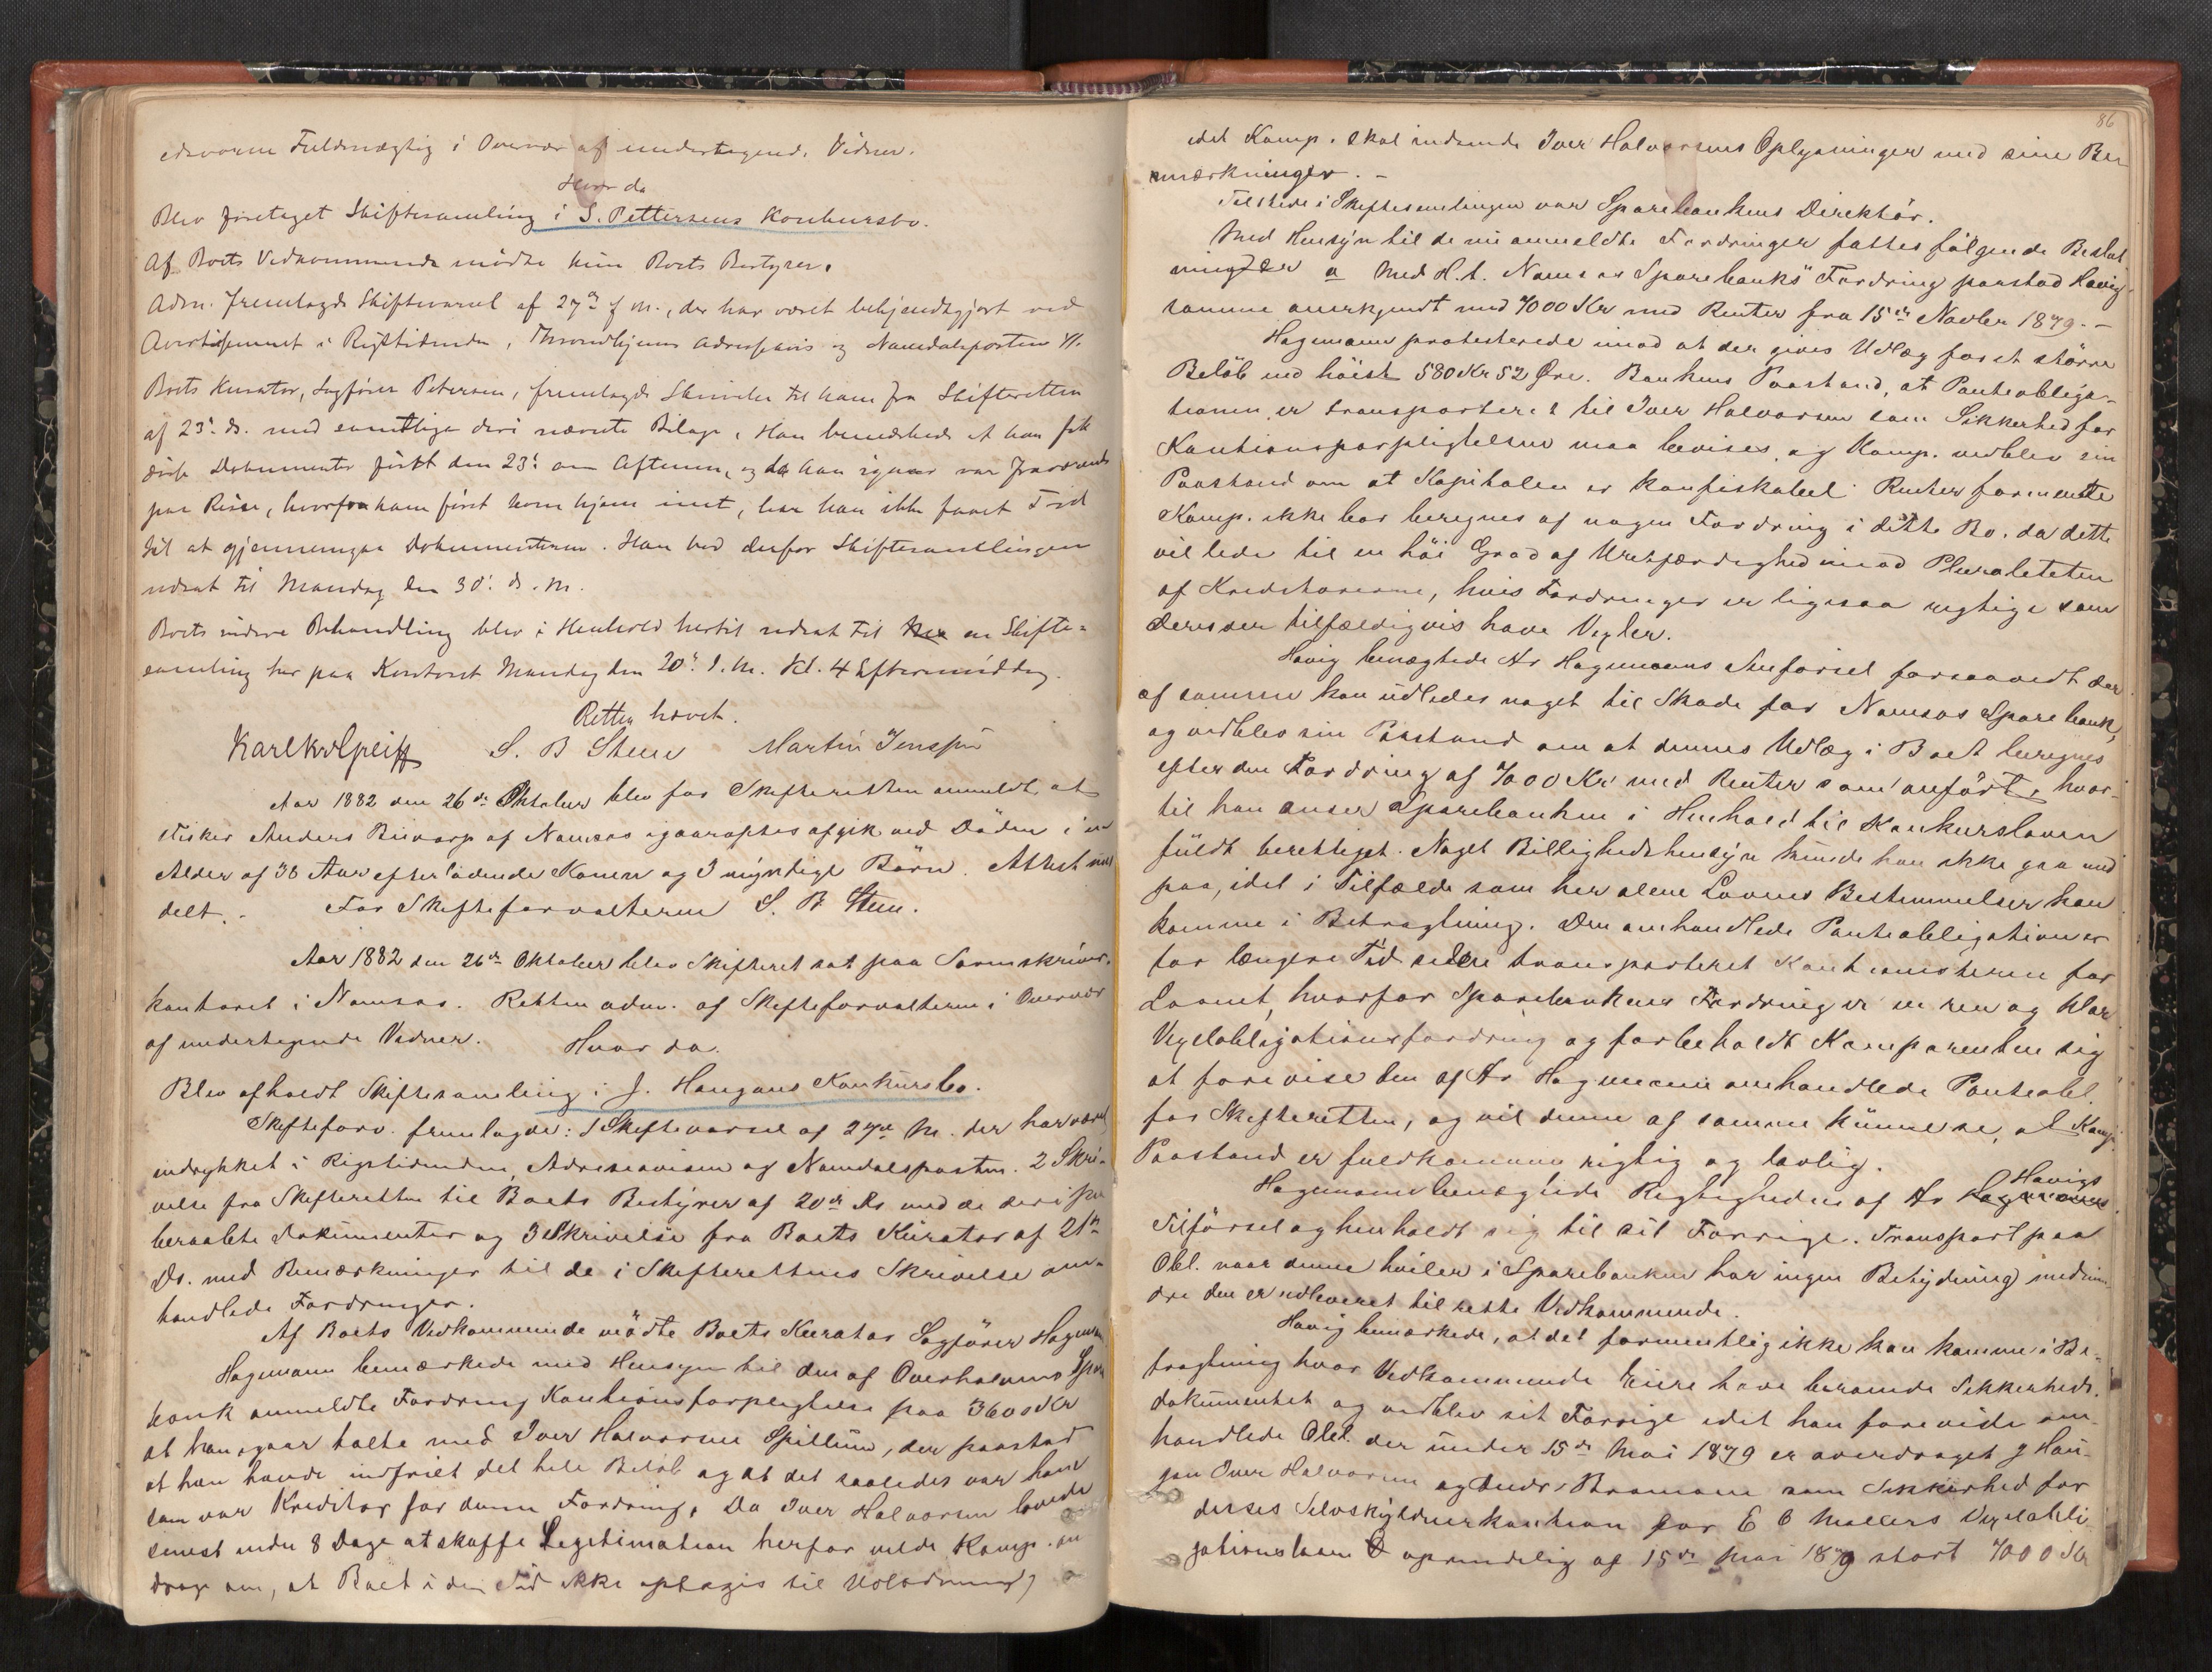 edsvoren Fuldmægtig i Overvær af undertegnede Vidner.
Hvor da
Blev foretaget Skiftesamling i S. Pettersens Konkursbo.
Af Boets Vedkommende mødte kun Boets Bestyrer.
Adm. fremlagde Skiftevarsel af 27de f. M., der har været bekjendtgjort ved
Avertissement i Rigstidende, Throndhjems Adresseavis og Namdalsposten
Boets Kurator, Sagfører Petersen, fremlagde Skrivelse til ham fra Skifteretten
af 23de ds. med samtlige deri nævnte Bilage. Han bemærkede at han fik
disse Dokumenter først den 23de om Aftenen, og da han igaar var fraværende
paa Reise, hvorfra han først kom hjem inat, har han ikke faaet Tid
til at gjennemgaa Dokumenterne. Han bad derfor Skiftesamlingen
udsat til Mandag den 30de ds. M.
Boets videre Behandling blev i Henhold hertil udsat til en Skifte-
samling her paa Kontoret Mandag den 20de n. M. Kl. 4 Eftermiddag.
Retten hævet.
S. B Steen Martin Jenssen
Aar 1882 den 26de Oktober blev for Skifteretten anmeldt, at
Fisker Anders af Namsos igaaraftes afgik ved Døden i en
Alder af 38 Aar efterladende Konen og 3 myndige Børn. Attest med
delt. - For Skifteforvalteren S. B Steen.
Aar 1882 den 26de Oktober blev Skifteret sat paa Sorenskriver-
kontoret i Namsos. Retten adm. af Skifteforvalteren i Overvær
af undertegnede Vidner. Hvor da.
Blev afholdt Skiftesamling i J. Haugans Konkursbo.
Skifteforv. fremlagde: 1 Skiftevarsel af 27de f. M. der har været
indrykket i Rigstidenden, Adresseavisen og Namdalsposten. 2 Skri-
velse fra Skifteretten til Boets Bestyrer af 20de ds med de deri på
beraabte Dokumenter og 3 Skrivelse fra Boets Kurator af 21de
Ds. med Bemærkninger til de i Skifterettens Skrivelse om-
handlede Fordringer.
Af Boets Vedkommende mødte Boets Kurator Sagfører Hagemann
Hagemann bemærkede med Hensyn til den af Overhalvens Spare
bank anmeldte Fordring Kautionsforpligtelse paa 3600 Kr
at han igaar talte med Iver Halvorsen Spillum, der paastod
at han havde indfriet det hele Beløb og at det saaledes var ham
som var Kreditor for denne Fordring. Da Iver Halvorsen lovede
senest inden 8 Dage at skaffe Legitimation herfor vilde Komp. an
drage om, at Boet i den Tid ikke optages til Udlodning,
86
idet Komp. skal indsende Iver Halvorsens Oplysninger med sine Be-
mærkninger. -
Tilstede i Skiftesamlingen var Sparebankens Direktør.
Med Hensyn til de nu anmeldte Fordringer fattes følgende Beslut
ninger a Med H. t. Namsos Sparebanks Fordring paastod Havig
samme anerkjendt med 4000 Kr med Renter fra 15de Novbr 1879. -
Hagemann protesterede imod at der gives Udlæg for et større
Beløb end høist 580 Kr 52 Øre. Bankens Paastand, at Panteobliga-
tionen er transporteret til Iver Halvorsen som Sikkerhed for
Kautionsforpligtelsen maa bevises, og Komp. vedblev sin
Paastand om at Kapitalen er konfiskabel. Renter formente
Komp. ikke bør beregnes af nogen Fordring i dette Bo, da dette
vil lede til en høi Grad af Uretfærdighed imod Pluraliteten
af Kreditorerne, hvis Fordringer er ligesaa rigtige som
deres der tilfældigvis have Vexler.
Havig benægtede Hr Hagemanns Anførsel forsaavidt der
af samme kan udledes noget til Skade for Namsos Sparebank,
og vedblev sin Paastand om at dennes Udlæg i Boet beregnes
efter den Fordring af 4000 Kr med Renter som anført, hvor-
til han anser Sparebanken i Henhold til Konkursloven
fuldt berettiget. Noget Billighedshensyn kunde han ikke gaa ind
paa, idet i Tilfælde som her alene Lovens Bestemmelser kan
komme i Betragtning. Den omhandlede Panteobligation er
for længere Tid siden transporteret Kautionisterne for
Laanet, hvorfor Sparebankens Fordring er en ren og klar
Vexelobligationsfordring og forbeholdt Komparenten sig
at forevise den af Hr Hagemann omhandlede Panteobl.
for Skifteretten, og vil denne af samme kunne se, at Komp.
Paastand er fuldkommen rigtig og lovlig.
Hagemann benægtede Rigtigheden af Hr Havigs
Tilførsel og henholdt sig til sit Forrige. Transport paa
Obl. naar denne hviler i Sparebanken har ingen Betydning medmin-
dre den er udleveret til rette Vedkommende.
Havig bemærkede, at det formentlig ikke kan komme i Be-
tragtning hvor Vedkommende Eiere have beroende Sikkerheds-
dokumentet og vedblev sit Forrige idet han foreviste om-
handlede Obl. der under 15de Mai 1879 er overdraget J Hau-
gan Iver Halvorsen og Andr. Bromann som Sikkerhed for
disses Selvskyldnerkaution for E B Møllers Vexelobli-
gationslaan oprindelig af 15de Mai 1879 stort 4000 Kr